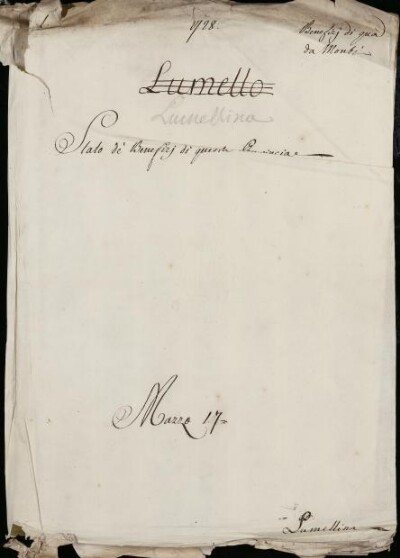 1728.
Benefizj di qua
da Monti
Lumello
Lumellina
Stato de Benefizj di questa
Mazzo 17=
Lumellina